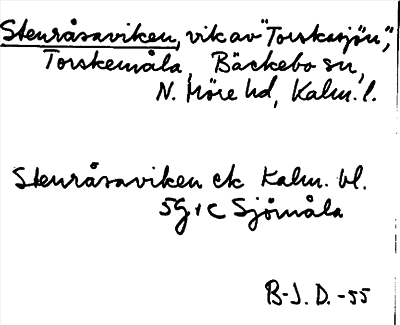 Stenråsaviken, vik av "Torskasjön",
Torskemåla, Bäckebo sn,
N. Möre hd, Kalm. l.
Stenråsaviken ek Kalm. bl.
5G 1 C Sjömåla
B-J. D. -55